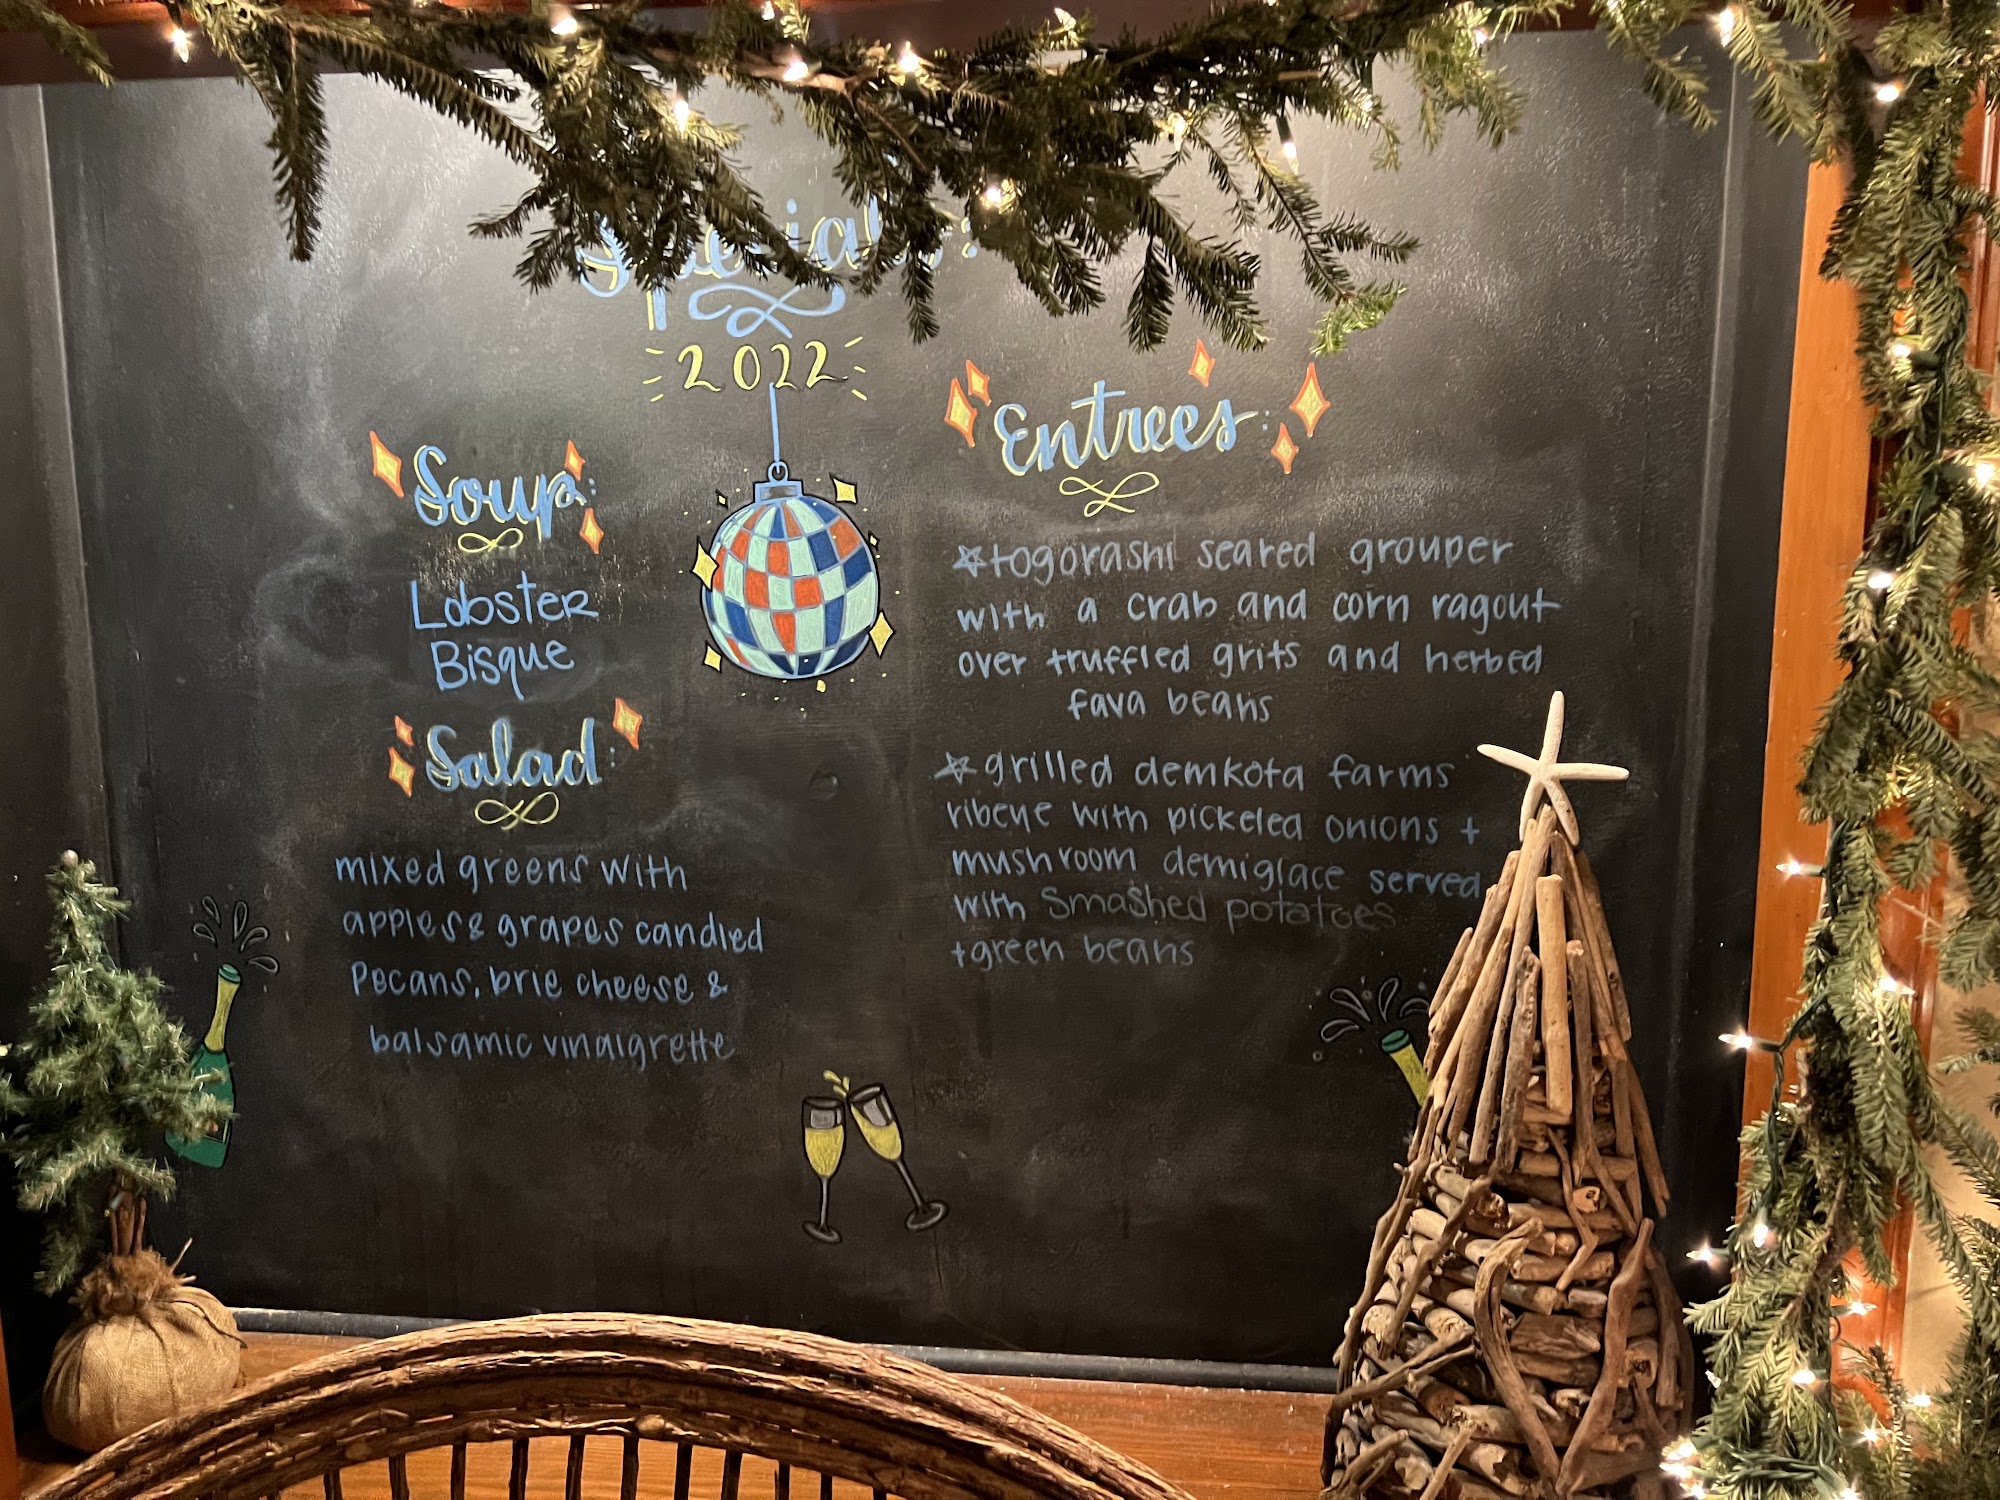 Specials:
2022
Soup:
Lobster
Bisque
Salad:
mixed greens with
apples & grapes candied
Pecans, brie cheese &
balsamic vinaigrette
Entrees:
togorashi seared grouper
with a crab and corn ragout
over truffled grits and herbed
fava beans
grilled demkota farms
ribeye with pickeled onions +
mushroom demiglace served
with smashed potatoes
+green beans